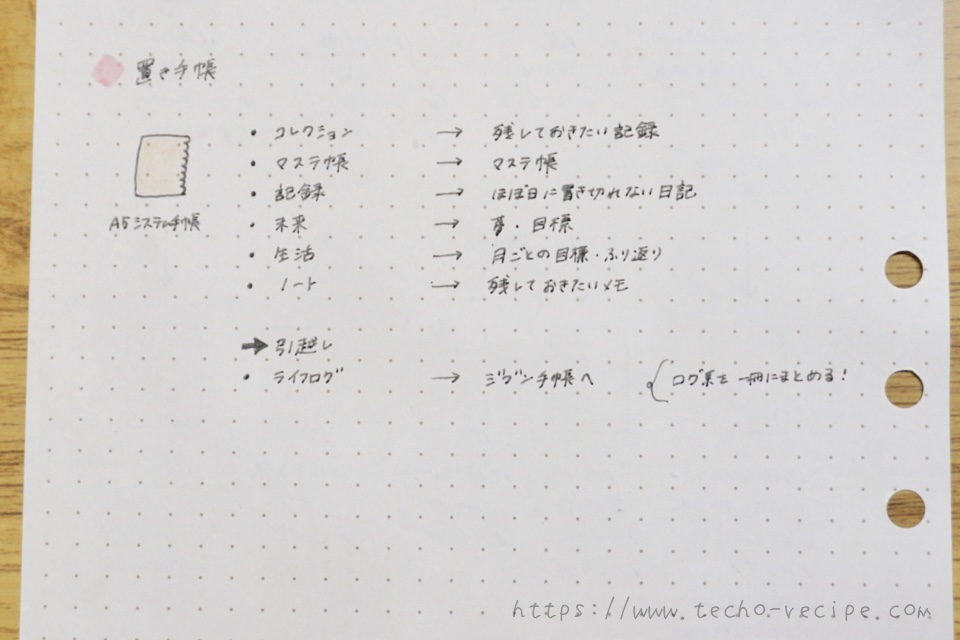 置き手帳
A5システム手帳
・コレクション → 残しておきたい記録
・マステ帳 → マステ帳
・記録 → ほぼ日に書き切れない日記
・未来 → 夢・目標
・生活 → 月ごとの目標・ふり返り
・ノート → 残しておきたいメモ
➡引越し
・ライフログ → ジブン手帳へ { ログ系を一冊にまとめる!
https://www.techo-recipe.com